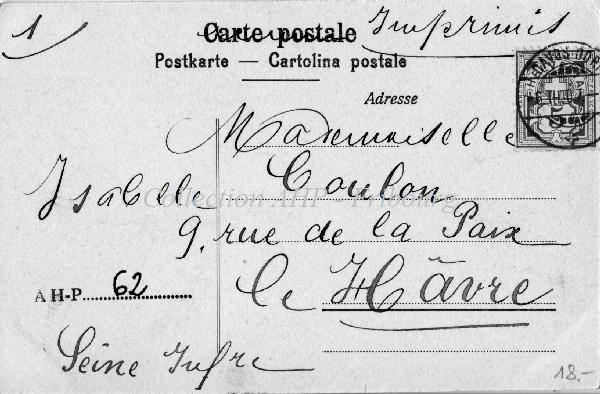 1
Carte postale
Imprimés
Postkarte — Cartolina postale
DAVOS
Adresse
Mademoiselle
Isabele Coulon
Collection AHP - Fribourg
9, rue de la Paix
AH-P. 62
le Hâvre
Seine Infre
18.-